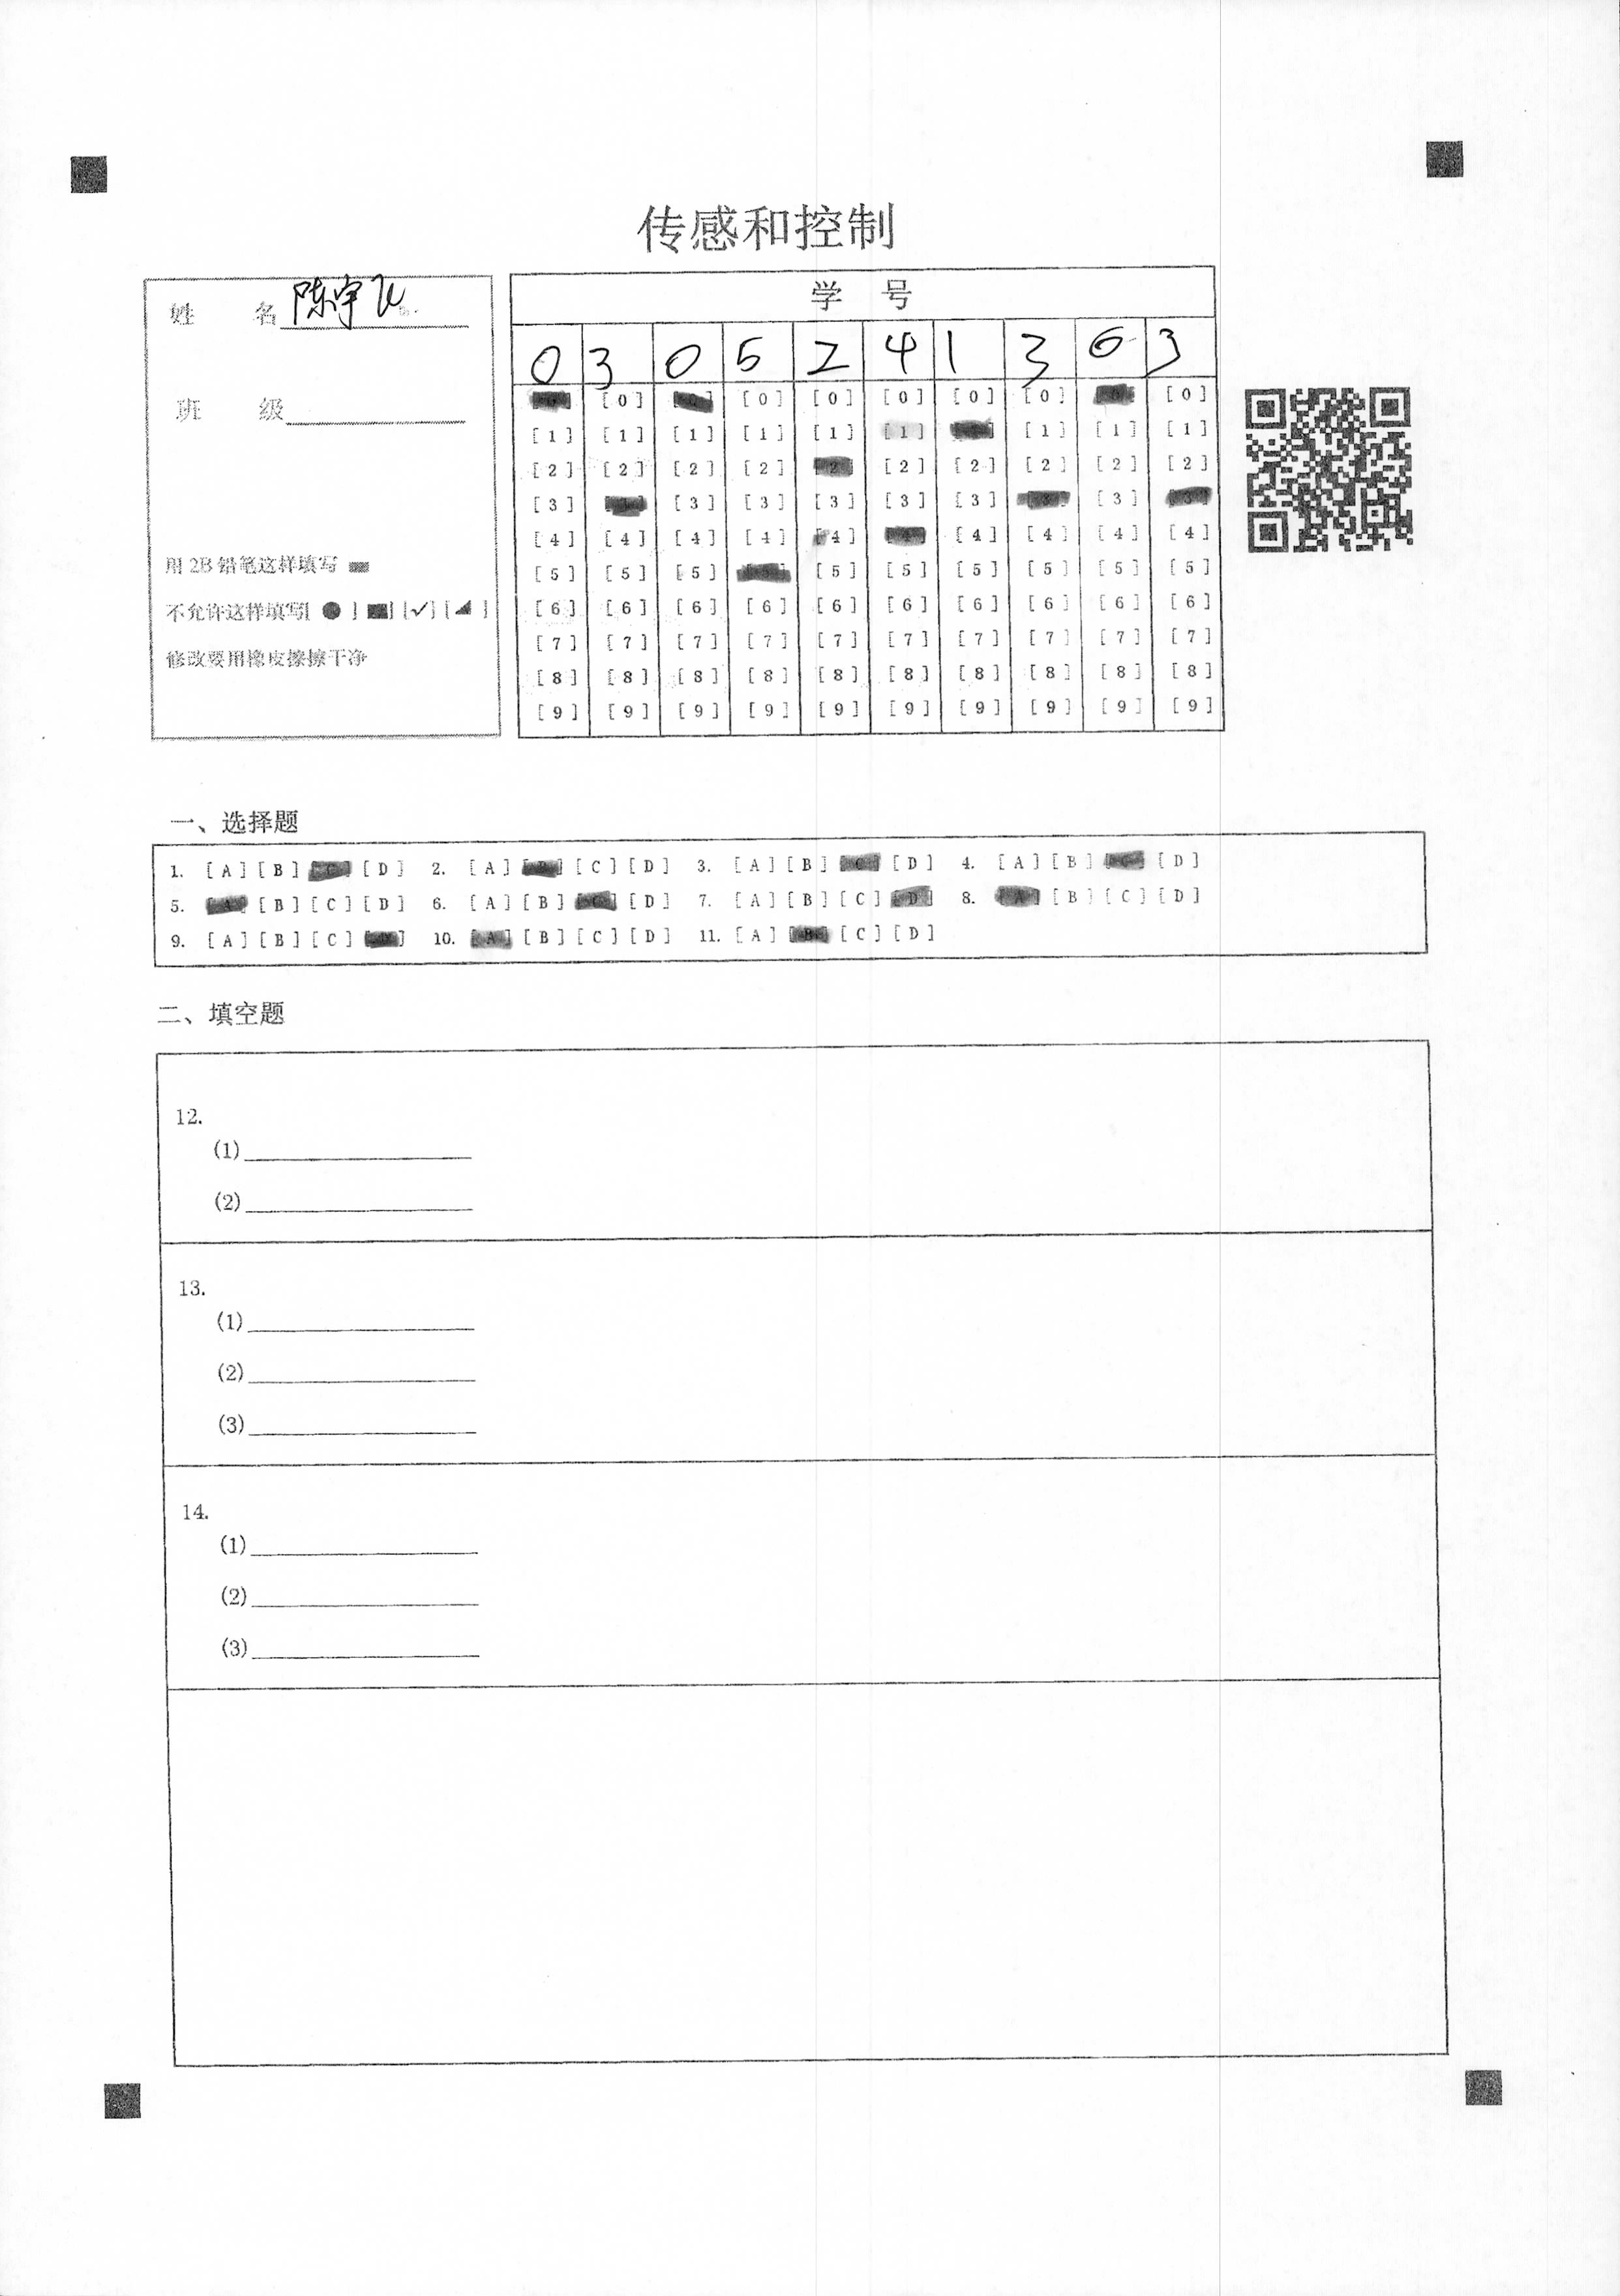 传感和控制
姓 名 陈宇飞
班 级
用 2B 铅笔这样填写
不允许这样填写[ ● ] [■] [✓] [◢ ]
修改要用橡皮擦擦干净
学 号
0 3 0 5 2 4 1 3 0 3
[0] [0] [0] [0] [0] [0] [0] [0] [0] [0]
[1] [1] [1] [1] [1] [1] [1] [1] [1] [1]
[2] [2] [2] [2] [2] [2] [2] [2] [2] [2]
[3] [3] [3] [3] [3] [3] [3] [3] [3] [3]
[4] [4] [4] [4] [4] [4] [4] [4] [4] [4]
[5] [5] [5] [5] [5] [5] [5] [5] [5] [5]
[6] [6] [6] [6] [6] [6] [6] [6] [6] [6]
[7] [7] [7] [7] [7] [7] [7] [7] [7] [7]
[8] [8] [8] [8] [8] [8] [8] [8] [8] [8]
[9] [9] [9] [9] [9] [9] [9] [9] [9] [9]
一、选择题
1. [A] [B] [C] [D] 2. [A] [B] [C] [D] 3. [A] [B] [C] [D] 4. [A] [B] [C] [D]
5. [A] [B] [C] [D] 6. [A] [B] [C] [D] 7. [A] [B] [C] [D] 8. [A] [B] [C] [D]
9. [A] [B] [C] [D] 10. [A] [B] [C] [D] 11. [A] [B] [C] [D]
二、填空题
12.
(1)
(2)
13.
(1)
(2)
(3)
14.
(1)
(2)
(3)